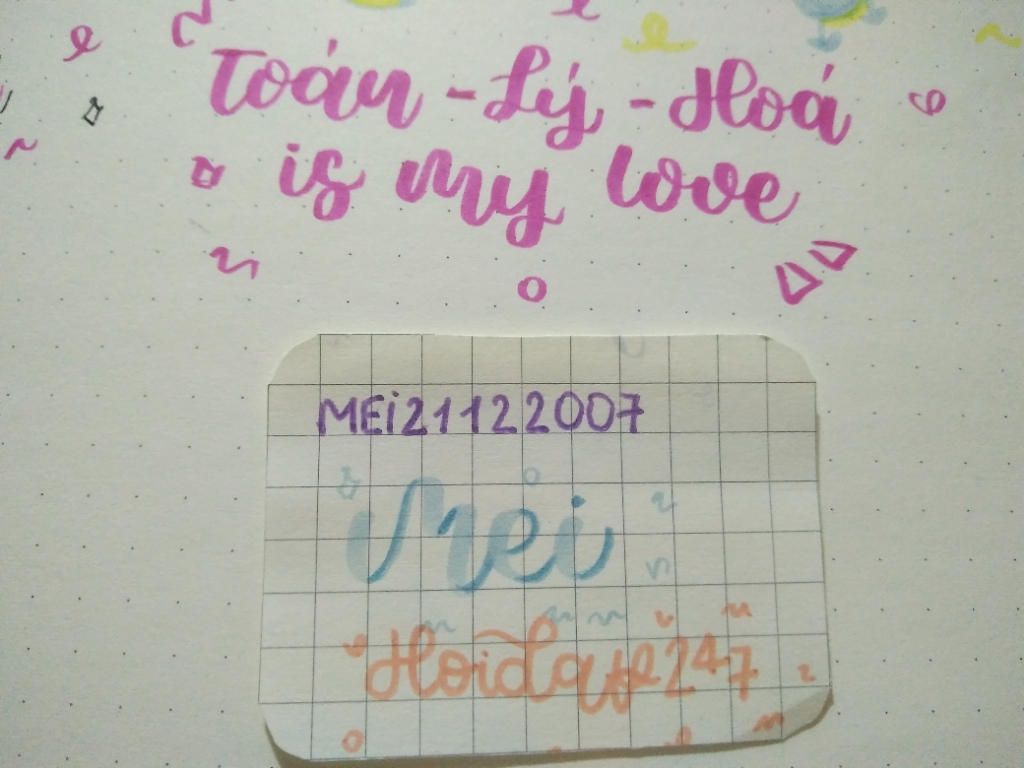 Toán - Lý - Hoá
is my love
MEi21122007
Mei
Hoidap247